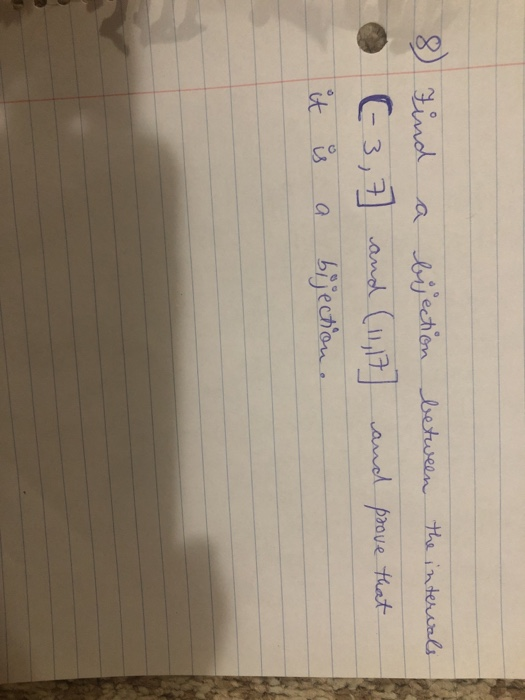 8) Find a bijection between the intervals
(-3,7] and (11,17] and prove that
it is a bijection.